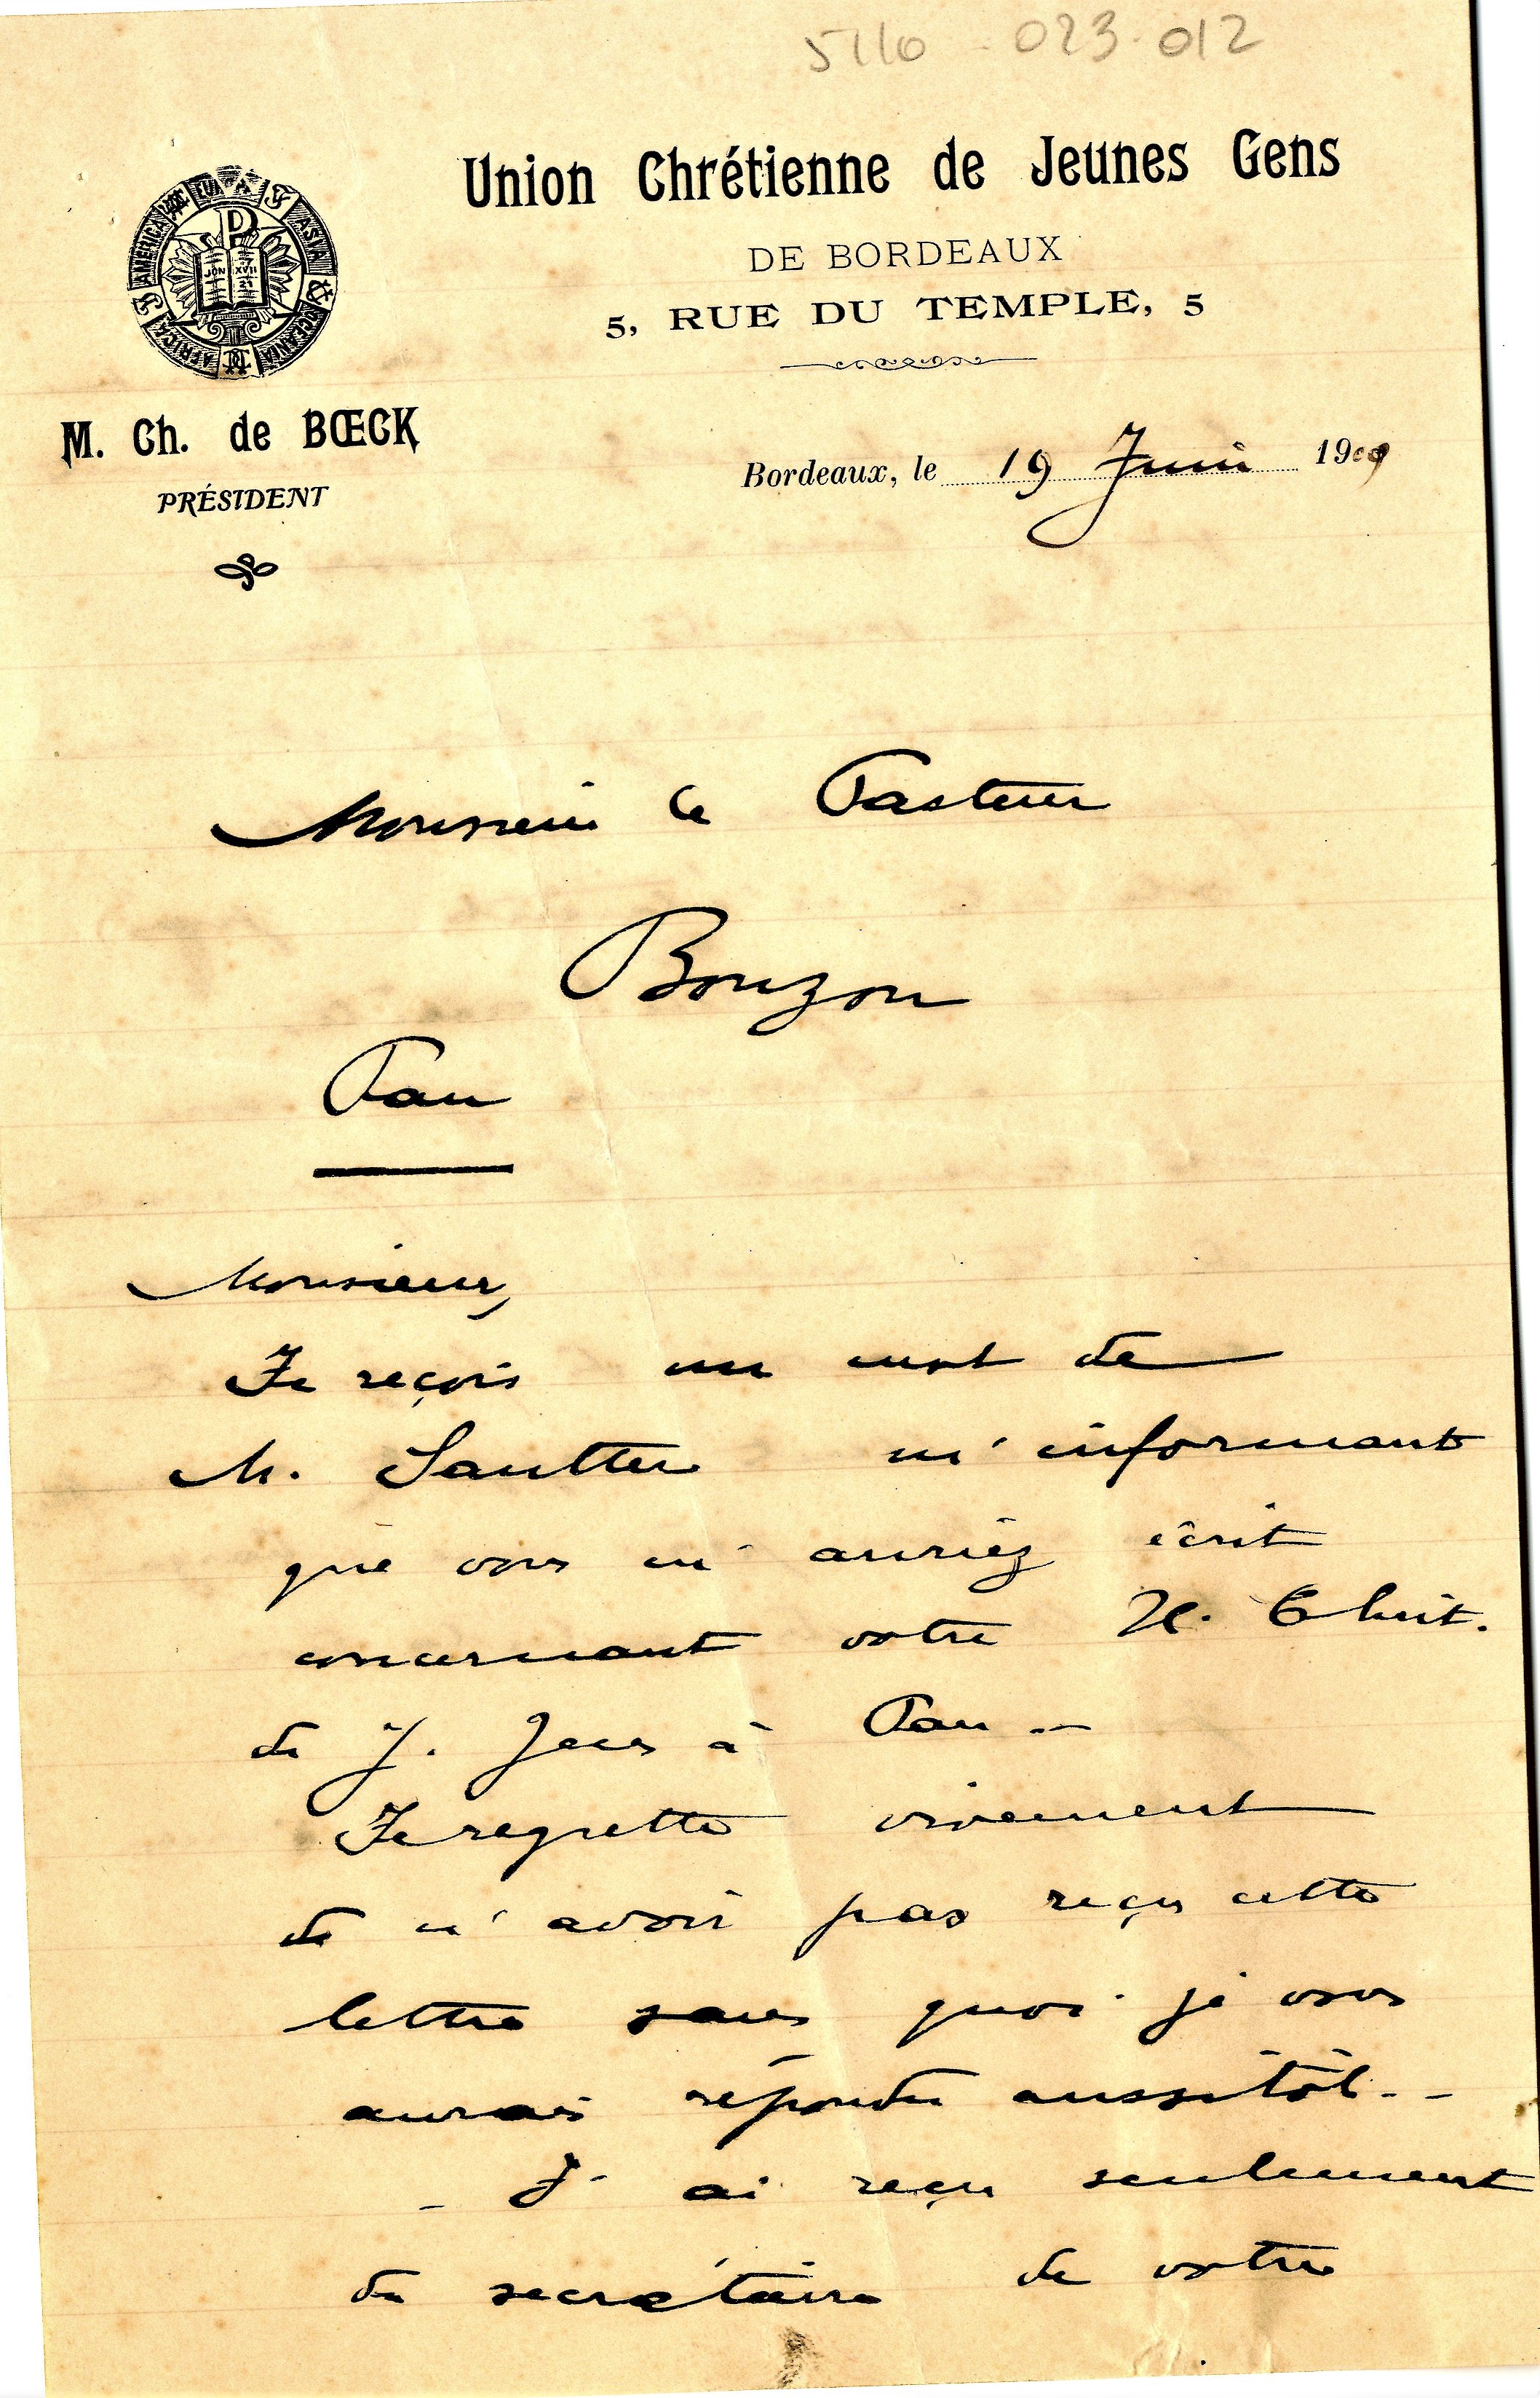 5110 - 023 - 012
Union Chrétienne de Jeunes Gens
DE BORDEAUX
5, RUE DU TEMPLE, 5
EUROPA ASIA OCEANIA AFRICA AMERICA
JON XVII 21
M. Ch. de BŒCK
PRÉSIDENT
Bordeaux, le 19 Juin 1909
Monsieur le Pasteur
Bouzon
Pau
Monsieur,
Je reçois un mot de
M. Sautter m'informant
que vous m'auriez écrit
concernant votre U. Chrét.
de J. Gens à Pau -
Je regrette vivement
de n'avoir pas reçu cette
lettre sans quoi je vous
aurais répondu aussitôt. -
- J'ai reçu seulement
du secrétaire de votre